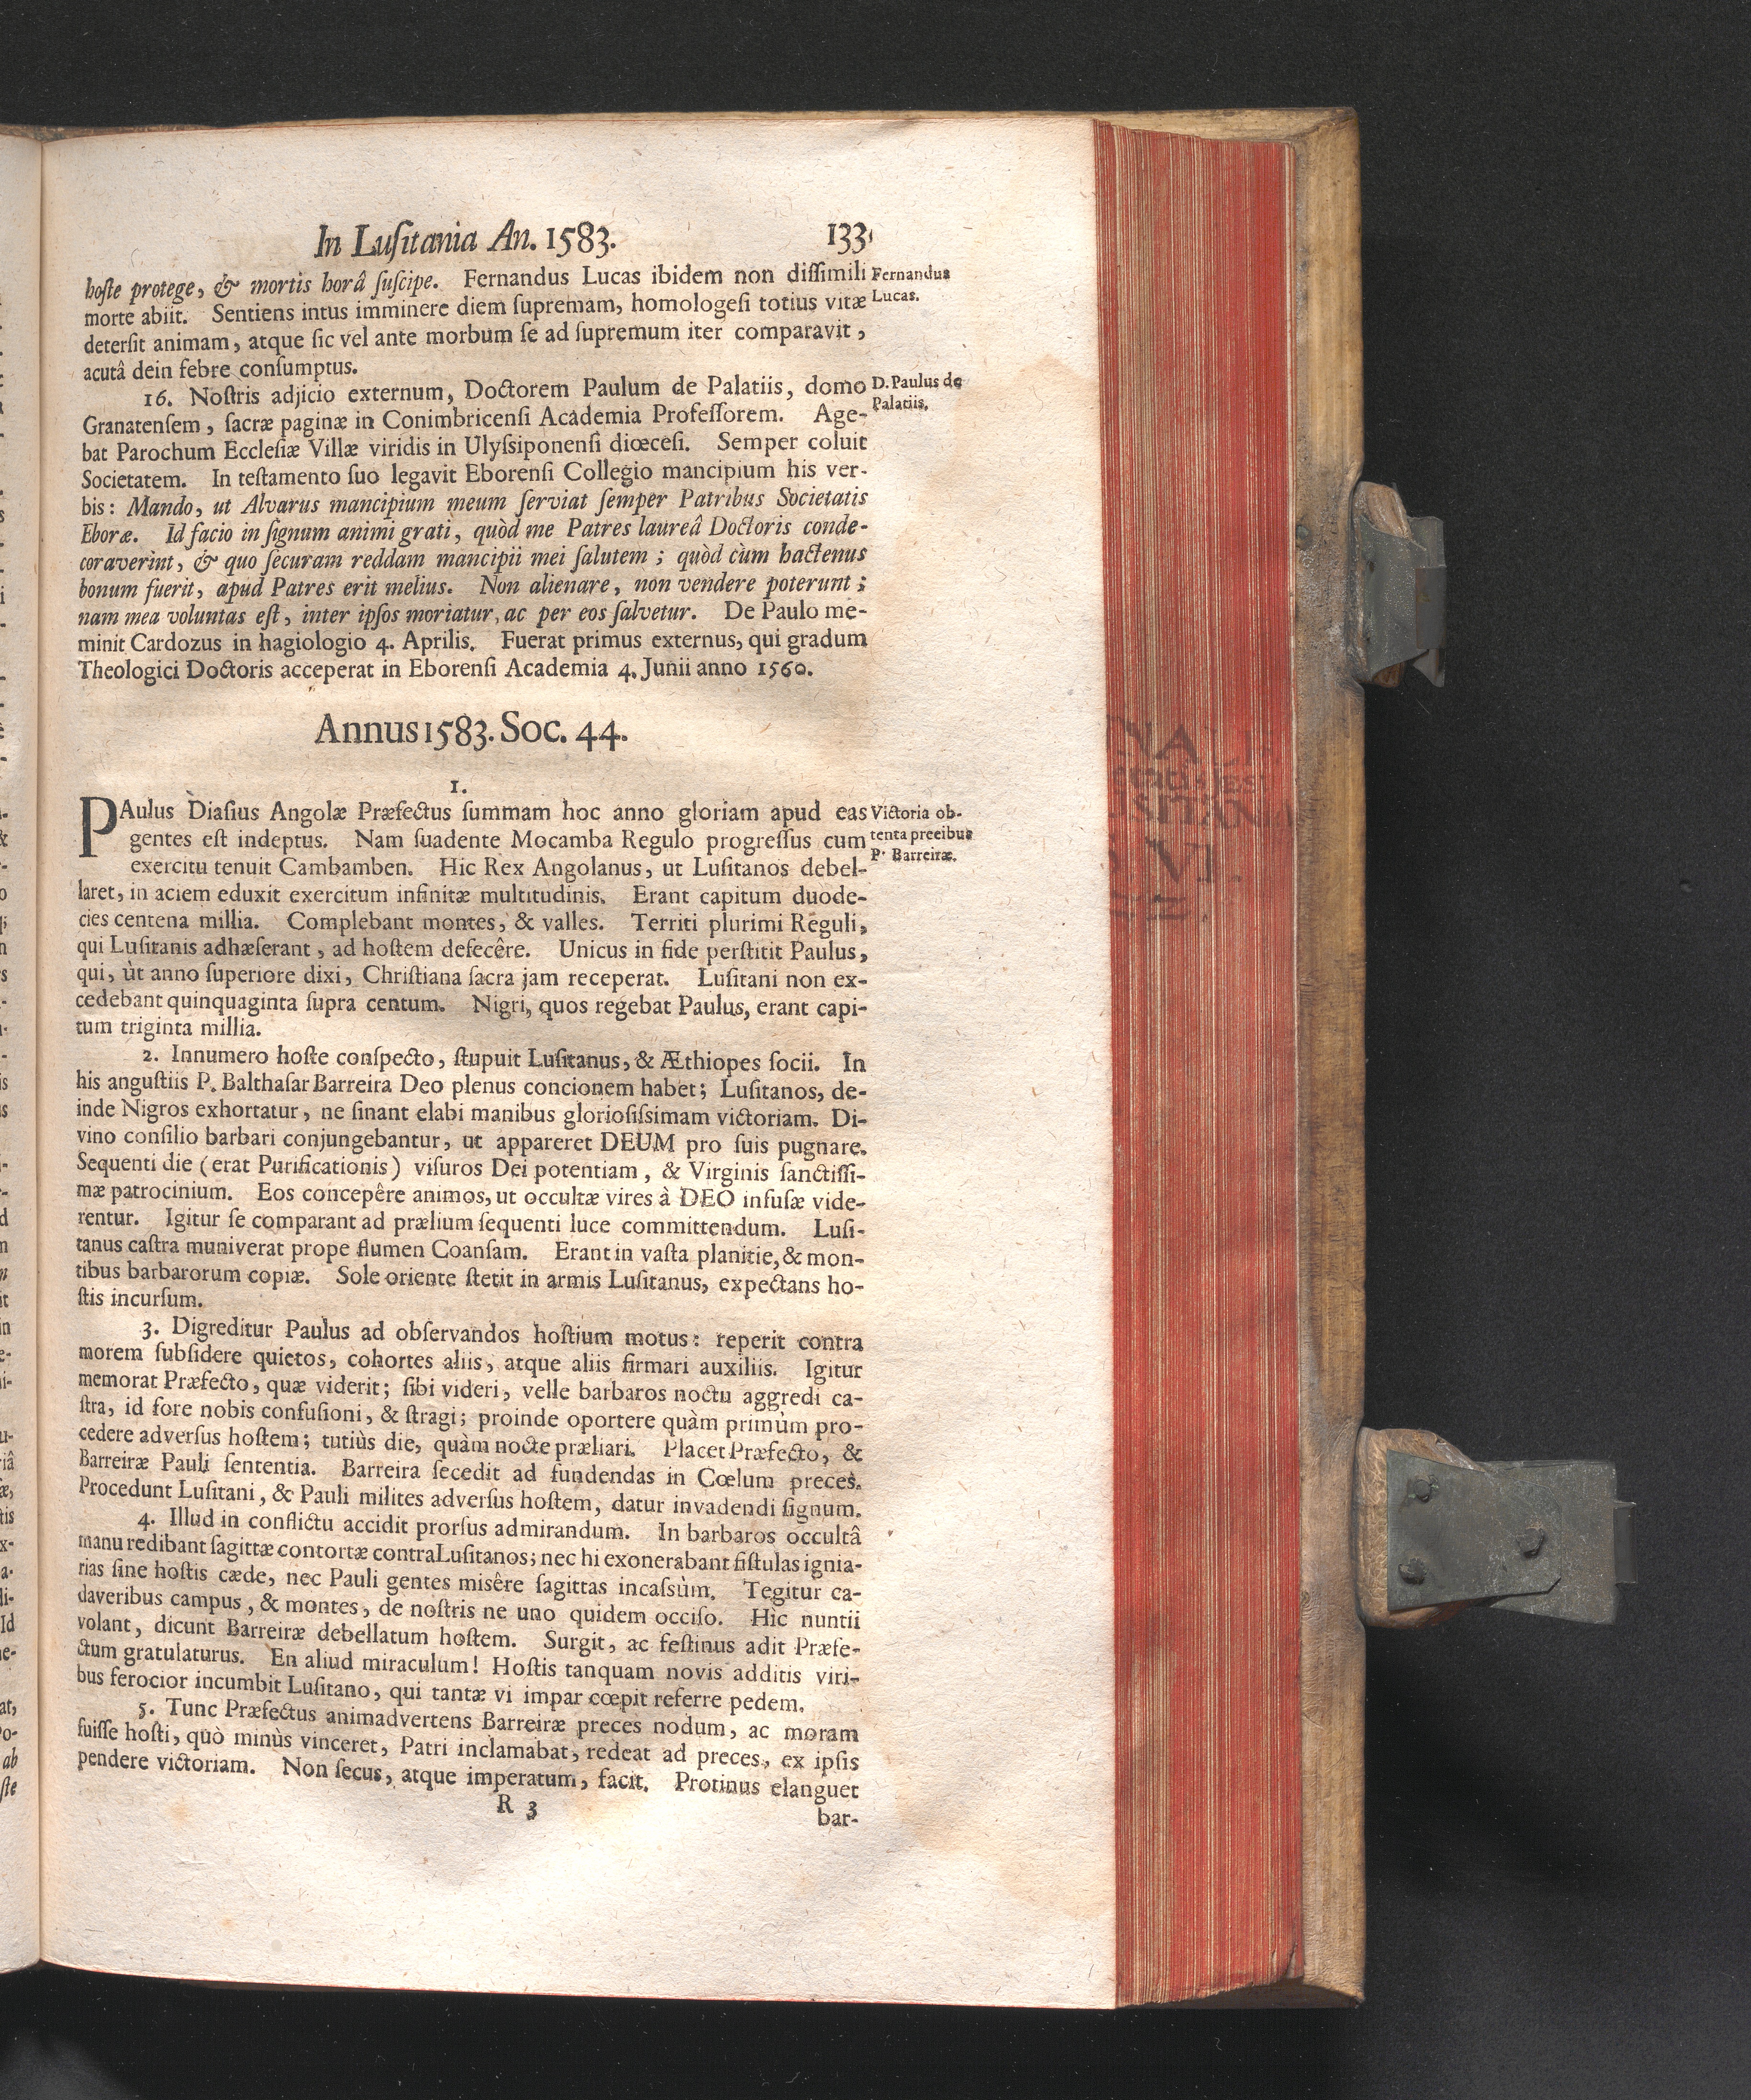 In Luſitania An. 1583. 133
hoſte protege, & mortis horâ ſuſcipe. Fernandus Lucas ibidem non diſſimili
Fernandus
morte abiit. Sentiens intus imminere diem ſupremam, homologeſi totius vitæ
Lucas.
deterſit animam, atque ſic vel ante morbum ſe ad ſupremum iter comparavit,
acutâ dein febre conſumptus.
16. Noſtris adjicio externum, Doctorem Paulum de Palatiis, domo
D. Paulus de
Granatenſem, ſacræ paginæ in Conimbricenſi Academia Profeſſorem. Age-
Palatiis.
bat Parochum Eccleſiæ Villæ viridis in Ulyſsiponenſi diœceſi. Semper coluit
Societatem. In teſtamento ſuo legavit Eborenſi Collegio mancipium his ver-
bis: Mando, ut Alvarus mancipium meum ſerviat ſemper Patribus Societatis
Eboræ. Id facio in ſignum animi grati, quòd me Patres laureâ Doctoris conde-
coraverint, & quo ſecuram reddam mancipii mei ſalutem; quòd cùm hactenus
bonum fuerit, apud Patres erit melius. Non alienare, non vendere poterunt;
nam mea voluntas eſt, inter ipſos moriatur, ac per eos ſalvetur. De Paulo me-
minit Cardozus in hagiologio 4. Aprilis. Fuerat primus externus, qui gradum
Theologici Doctoris acceperat in Eborenſi Academia 4. Junii anno 1560.
Annus 1583. Soc. 44.
1.
PAulus Diaſius Angolæ Præfectus ſummam hoc anno gloriam apud eas
Victoria ob-
gentes eſt indeptus. Nam ſuadente Mocamba Regulo progreſſus cum
tenta precibus
exercitu tenuit Cambamben. Hic Rex Angolanus, ut Luſitanos debel-
P. Barreiræ.
laret, in aciem eduxit exercitum infinitæ multitudinis. Erant capitum duode-
cies centena millia. Complebant montes, & valles. Territi plurimi Reguli,
qui Luſitanis adhæſerant, ad hoſtem defecêre. Unicus in fide perſtitit Paulus,
qui, ùt anno ſuperiore dixi, Chriſtiana ſacra jam receperat. Luſitani non ex-
cedebant quinquaginta ſupra centum. Nigri, quos regebat Paulus, erant capi-
tum triginta millia.
2. Innumero hoſte conſpecto, ſtupuit Luſitanus, & Æthiopes ſocii. In
his anguſtiis P. Balthaſar Barreira Deo plenus concionem habet; Luſitanos, de-
inde Nigros exhortatur, ne ſinant elabi manibus glorioſiſsimam victoriam. Di-
vino conſilio barbari conjungebantur, ut appareret DEUM pro ſuis pugnare.
Sequenti die (erat Purificationis) viſuros Dei potentiam, & Virginis ſanctiſſi-
mæ patrocinium. Eos concepêre animos, ut occultæ vires à DEO infuſæ vide-
rentur. Igitur ſe comparant ad prælium ſequenti luce committendum. Luſi-
tanus caſtra muniverat prope flumen Coanſam. Erant in vaſta planitie, & mon-
tibus barbarorum copiæ. Sole oriente ſtetit in armis Luſitanus, expectans ho-
ſtis incurſum.
3. Digreditur Paulus ad obſervandos hoſtium motus: reperit contra
morem ſubſidere quietos, cohortes aliis, atque aliis firmari auxiliis. Igitur
memorat Præfecto, quæ viderit; ſibi videri, velle barbaros noctu aggredi ca-
ſtra, id fore nobis confuſioni, & ſtragi; proinde oportere quàm primùm pro-
cedere adverſus hoſtem; tutiùs die, quàm nocte præliari. Placet Præfecto, &
Barreiræ Pauli ſententia. Barreira ſecedit ad fundendas in Cœlum preces.
Procedunt Luſitani, & Pauli milites adverſus hoſtem, datur invadendi ſignum.
4. Illud in conflictu accidit prorſus admirandum. In barbaros occultâ
manu redibant ſagittæ contortæ contra Luſitanos; nec hi exonerabant fiſtulas ignia-
rias ſine hoſtis cæde, nec Pauli gentes misêre ſagittas incaſsùm. Tegitur ca-
daveribus campus, & montes, de noſtris ne uno quidem occiſo. Hic nuntii
volant, dicunt Barreiræ debellatum hoſtem. Surgit, ac feſtinus adit Præfe-
ctum gratulaturus. En aliud miraculum! Hoſtis tanquam novis additis viri-
bus ferocior incumbit Luſitano, qui tantæ vi impar cœpit referre pedem.
5. Tunc Præfectus animadvertens Barreiræ preces nodum, ac moram
fuiſſe hoſti, quò minùs vinceret, Patri inclamabat, redeat ad preces, ex ipſis
pendere victoriam. Non ſecus, atque imperatum, facit. Protinus elanguet
R 3
bar-